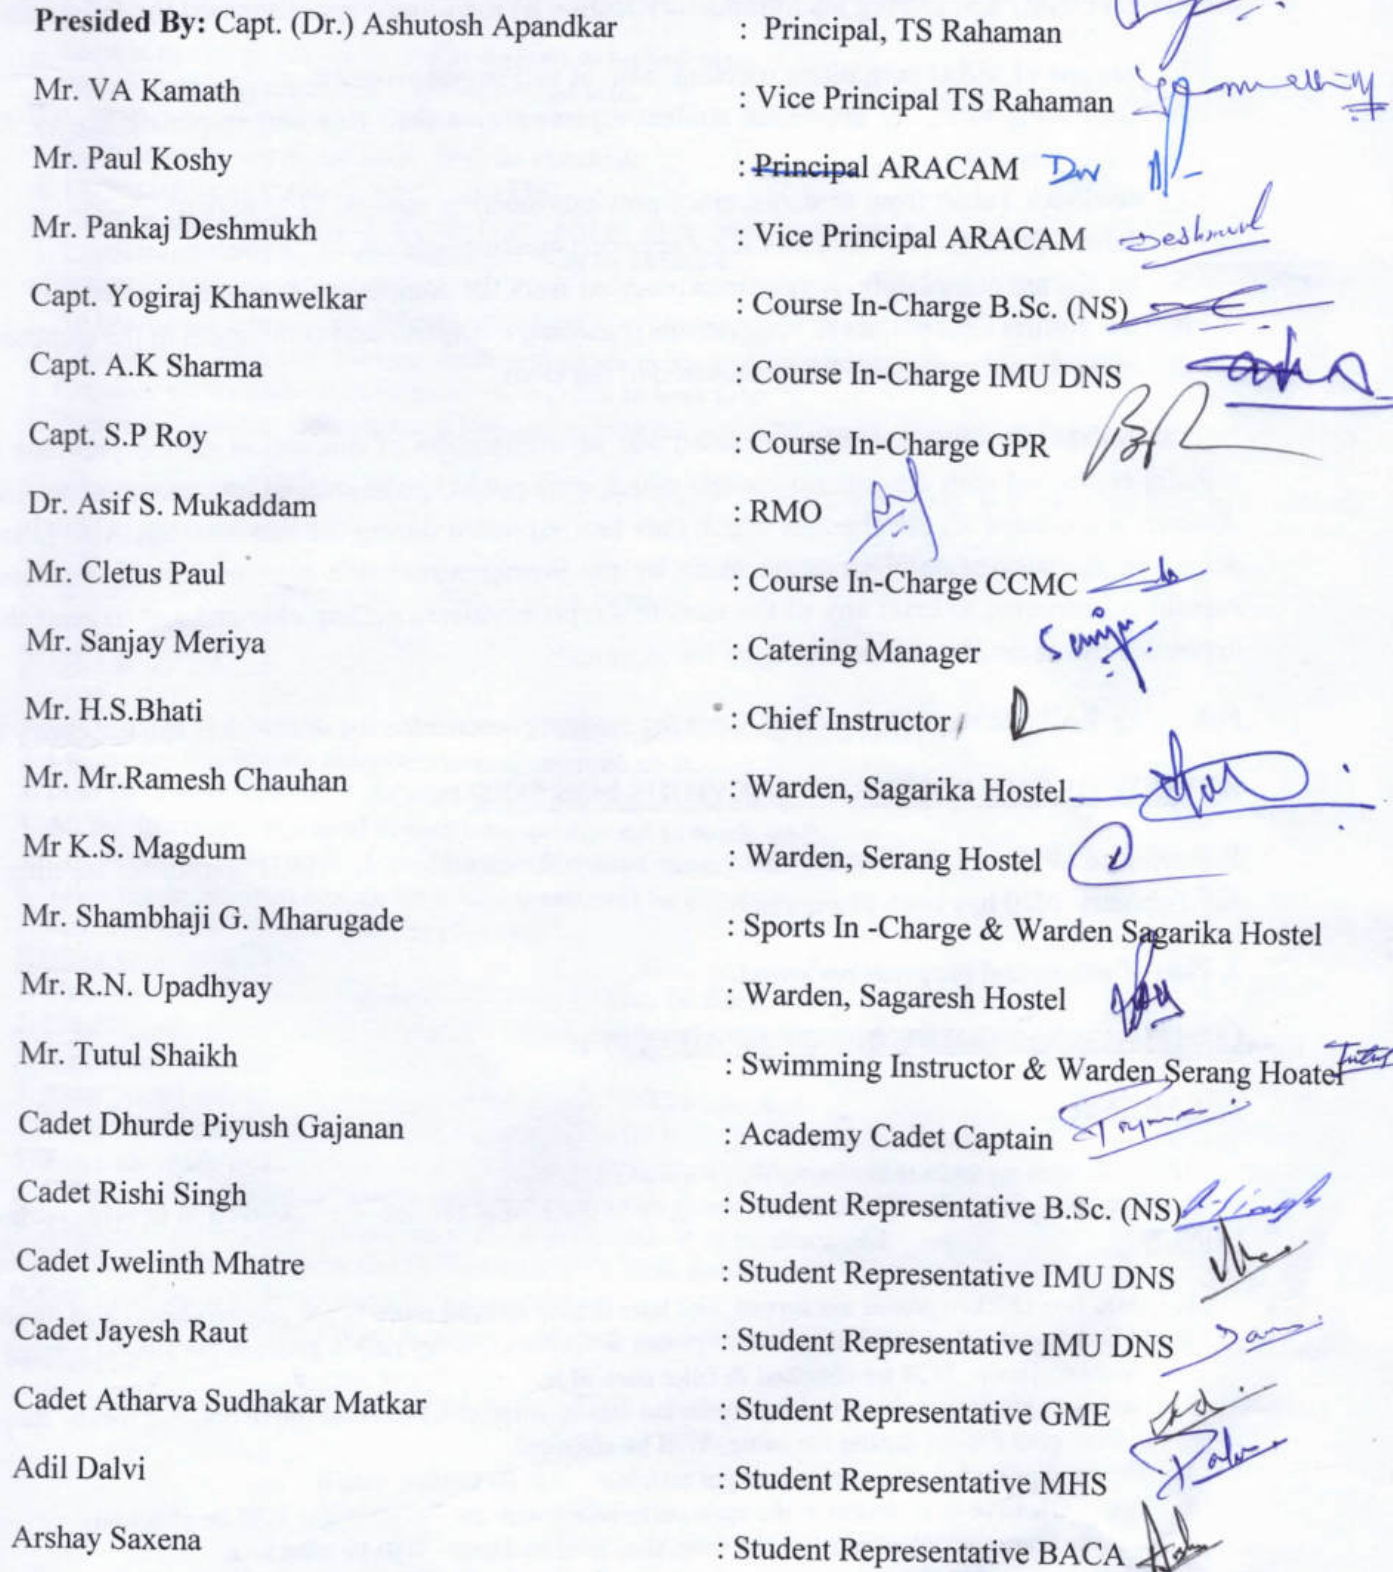 Presided By: Capt. (Dr.) Ashutosh Apandkar : Principal, TS Rahaman
Mr. VA Kamath : Vice Principal TS Rahaman
Mr. Paul Koshy : Principal ARACAM
Mr. Pankaj Deshmukh : Vice Principal ARACAM Deshmukh
Capt. Yogiraj Khanwelkar : Course In-Charge B.Sc. (NS)
Capt. A.K Sharma : Course In-Charge IMU DNS
Capt. S.P Roy : Course In-Charge GPR
Dr. Asif S. Mukaddam : RMO
Mr. Cletus Paul : Course In-Charge CCMC
Mr. Sanjay Meriya : Catering Manager
Mr. H.S.Bhati : Chief Instructor
Mr. Mr.Ramesh Chauhan : Warden, Sagarika Hostel
Mr K.S. Magdum : Warden, Serang Hostel
Mr. Shambhaji G. Mharugade : Sports In -Charge & Warden Sagarika Hostel
Mr. R.N. Upadhyay : Warden, Sagaresh Hostel
Mr. Tutul Shaikh : Swimming Instructor & Warden Serang Hoatel Tutul
Cadet Dhurde Piyush Gajanan : Academy Cadet Captain
Cadet Rishi Singh : Student Representative B.Sc. (NS) R. Singh
Cadet Jwelinth Mhatre : Student Representative IMU DNS
Cadet Jayesh Raut : Student Representative IMU DNS
Cadet Atharva Sudhakar Matkar : Student Representative GME
Adil Dalvi : Student Representative MHS
Arshay Saxena : Student Representative BACA